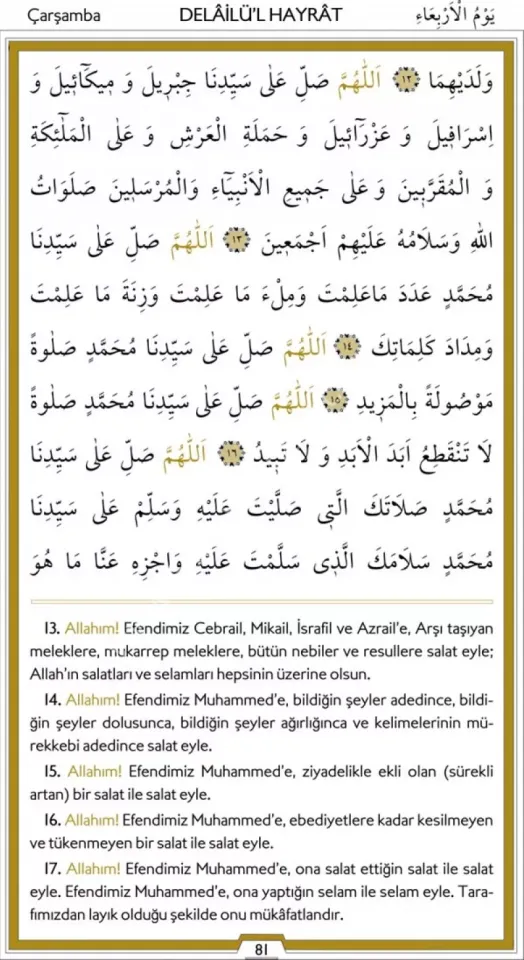 Çarşamba DELÂİLÜ'L HAYRÂT يَوْمُ الْاَرْبِعَاءِ
وَلَدَيْهِمَا ﴿١٢﴾ اَللّٰهُمَّ صَلِّ عَلٰى سَيِّدِنَا جِبْرٖيلَ وَ مٖيكَٓائٖيلَ وَ
اِسْرَافٖيلَ وَ عَزْرَٓائٖيلَ وَ حَمَلَةِ الْعَرْشِ وَ عَلَى الْمَلٰٓئِكَةِ
وَ الْمُقَرَّبٖينَ وَ عَلٰى جَمٖيعِ الْاَنْبِيَٓاءِ وَالْمُرْسَلٖينَ صَلَوَاتُ
اللهِ وَسَلَامُهُ عَلَيْهِمْ اَجْمَعٖينَ ﴿١٣﴾ اَللّٰهُمَّ صَلِّ عَلٰى سَيِّدِنَا
مُحَمَّدٍ عَدَدَ مَاعَلِمْتَ وَمِلْءَ مَا عَلِمْتَ وَزِنَةَ مَا عَلِمْتَ
وَمِدَادَ كَلِمَاتِكَ ﴿١٤﴾ اَللّٰهُمَّ صَلِّ عَلٰى سَيِّدِنَا مُحَمَّدٍ صَلٰوةً
مَوْصُولَةً بِالْمَزٖيدِ ﴿١٥﴾ اَللّٰهُمَّ صَلِّ عَلٰى سَيِّدِنَا مُحَمَّدٍ صَلٰوةً
لَا تَنْقَطِعُ اَبَدَ الْاَبَدِ وَ لَا تَبٖيدُ ﴿١٦﴾ اَللّٰهُمَّ صَلِّ عَلٰى سَيِّدِنَا
مُحَمَّدٍ صَلَاتَكَ الَّتٖى صَلَّيْتَ عَلَيْهِ وَسَلِّمْ عَلٰى سَيِّدِنَا
مُحَمَّدٍ سَلَامَكَ الَّذٖى سَلَّمْتَ عَلَيْهِ وَاجْزِهِ عَنَّا مَا هُوَ
13. Allahım! Efendimiz Cebrail, Mikail, İsrafil ve Azrail'e, Arşı taşıyan
meleklere, mukarrep meleklere, bütün nebiler ve resullere salat eyle;
Allah'ın salatları ve selamları hepsinin üzerine olsun.
14. Allahım! Efendimiz Muhammed'e, bildiğin şeyler adedince, bildi-
ğin şeyler dolusunca, bildiğin şeyler ağırlığınca ve kelimelerinin mü-
rekkebi adedince salat eyle.
15. Allahım! Efendimiz Muhammed'e, ziyadelikle ekli olan (sürekli
artan) bir salat ile salat eyle.
16. Allahım! Efendimiz Muhammed'e, ebediyetlere kadar kesilmeyen
ve tükenmeyen bir salat ile salat eyle.
17. Allahım! Efendimiz Muhammed'e, ona salat ettiğin salat ile salat
eyle. Efendimiz Muhammed'e, ona yaptığın selam ile selam eyle. Tara-
fımızdan layık olduğu şekilde onu mükâfatlandır.
81